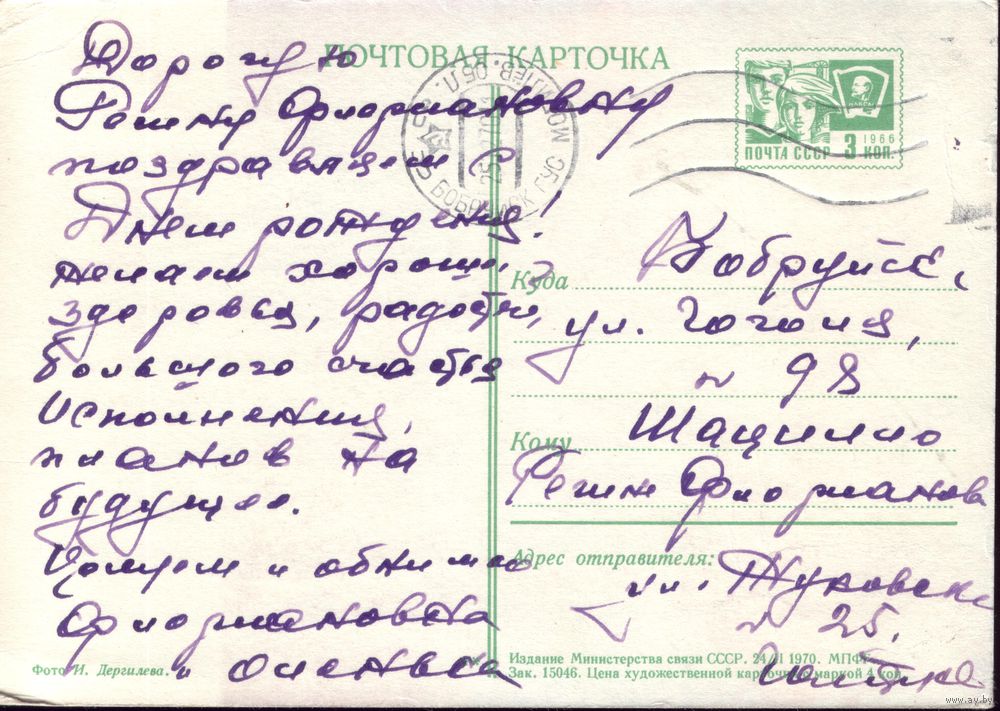 ПОЧТОВАЯ КАРТОЧКА
Дорогую
Регину Флориановну
поздравляем с
Днем рождения!
желаем хороши
здоровья, радости,
большого счастья
исполнения,
планов на
будущее.
Целуем и обнимаю
Флориановна
и Оленька
Фото И. Дергилева.
1966
ПОЧТА СССР 3 КОП.
БОБРУЙСК ГУС МОГИЛЕВ. ОБЛ.
25
Куда Бобруйск,
ул. Гоголя,
№ 98
Кому Шацилло
Регине Флориановн
Адрес отправителя:
ул. Жуковск
№ 25.
Издание Министерства связи СССР. 24/II 1970. МПФГ
Зак. 15046. Цена художественной карточки с маркой 4 коп.
www.ay.by